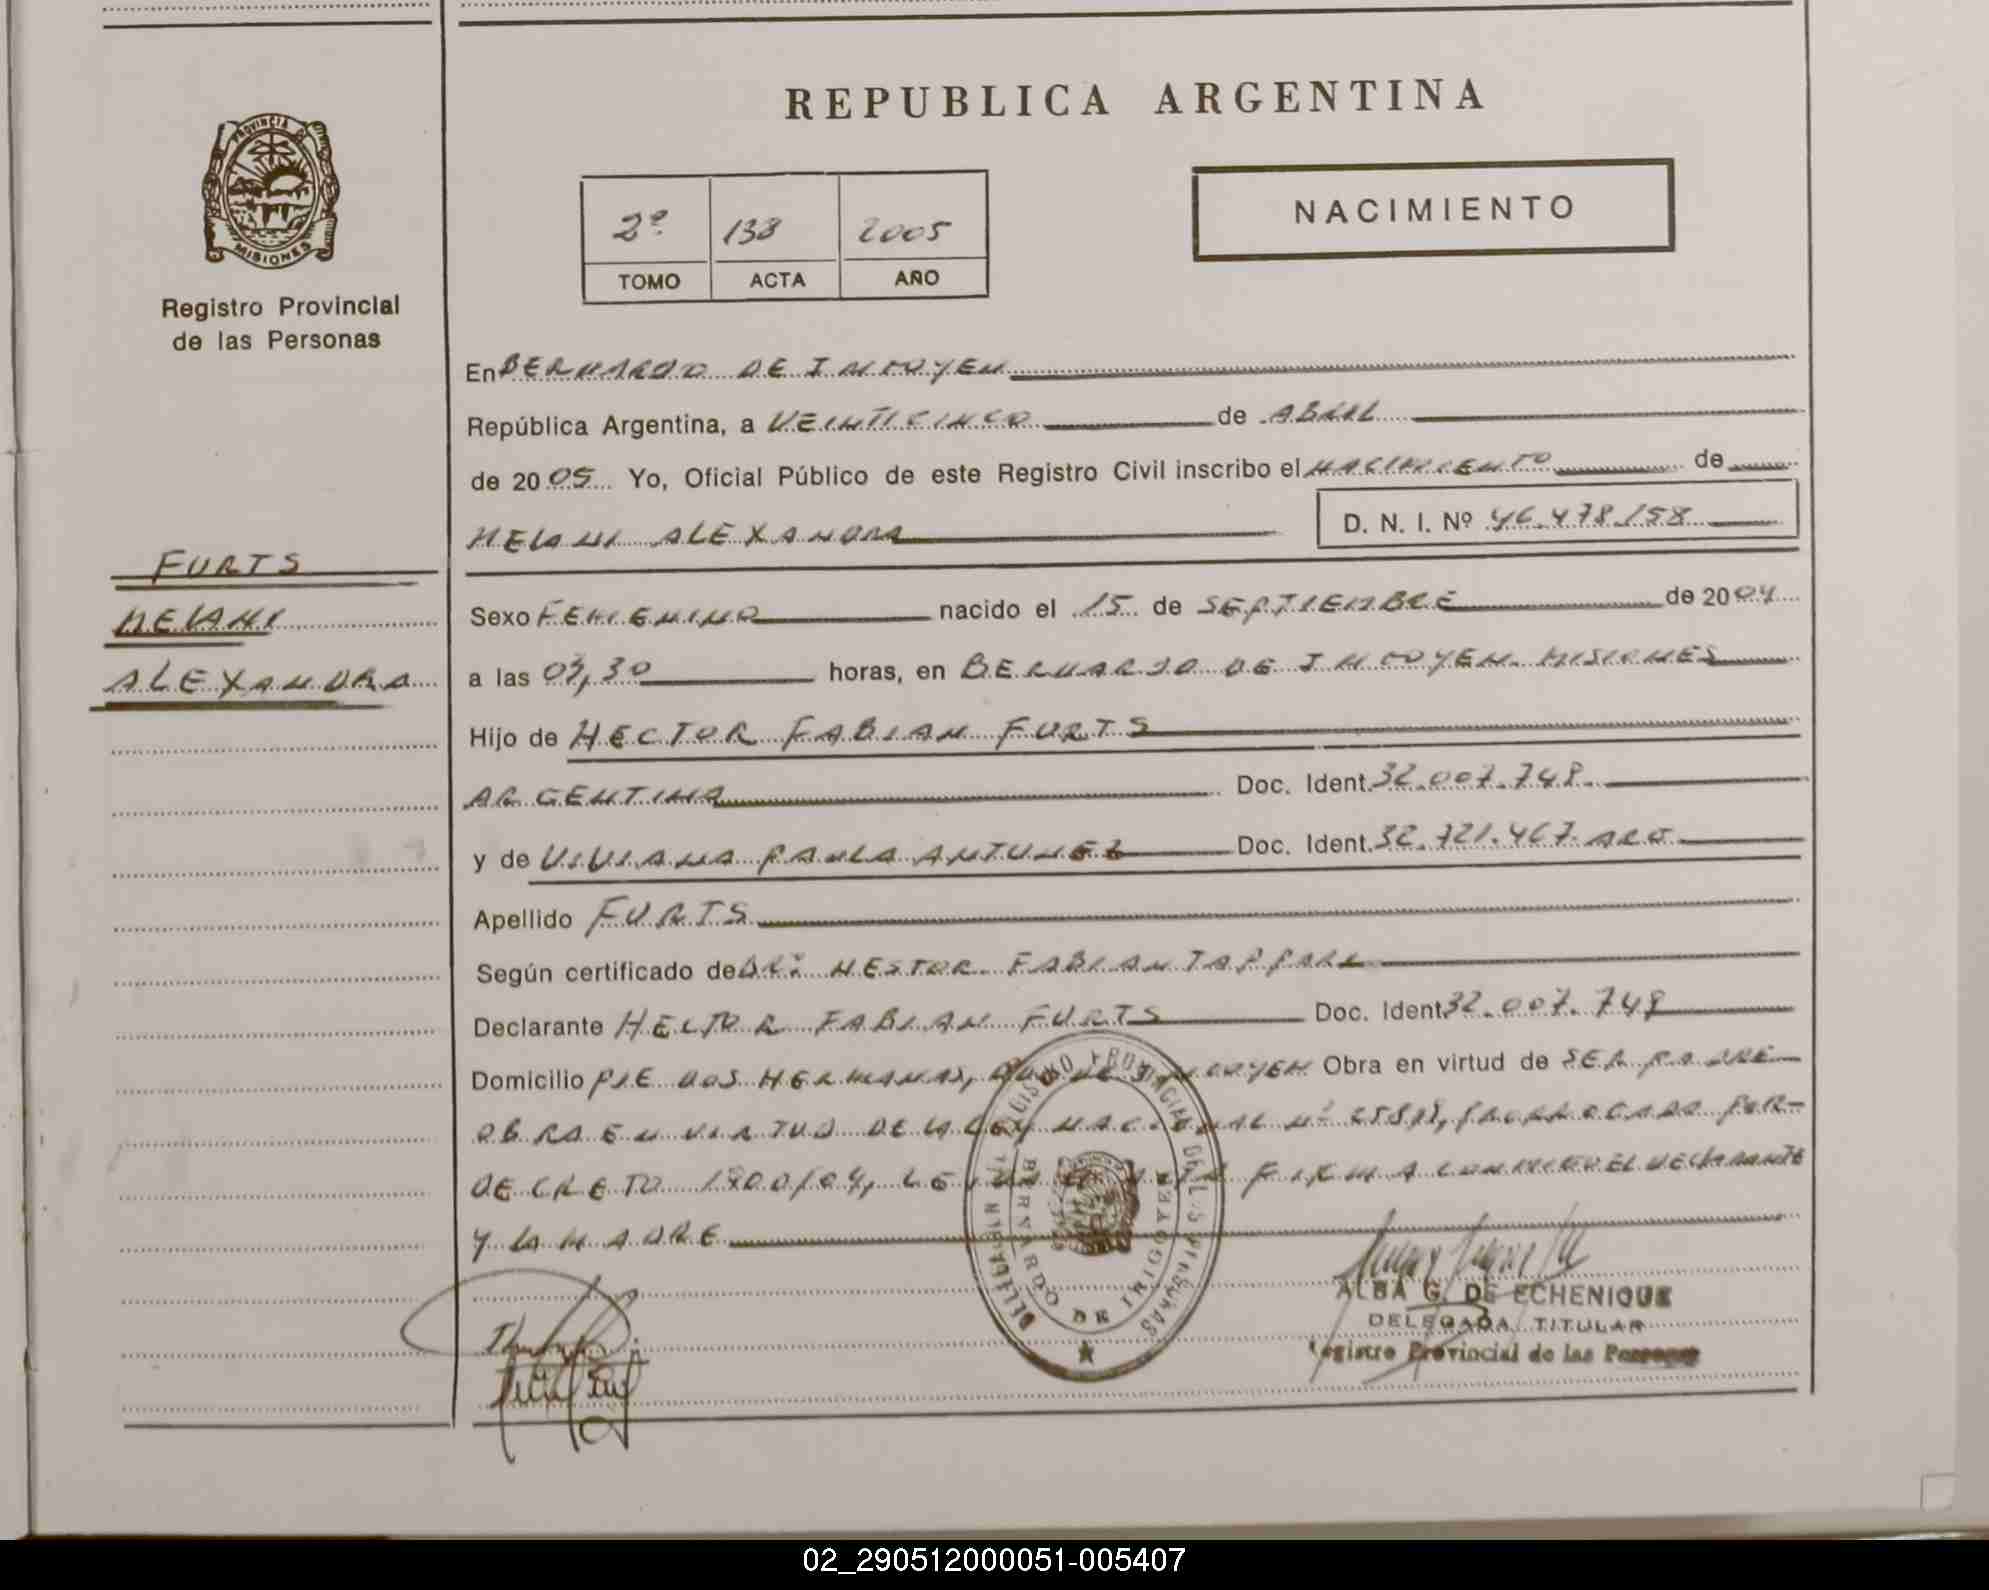 REPUBLICA ARGENTINA
PROVINCIA DE
MISIONES
Registro Provincial
de las Personas
2º 133 2005
TOMO ACTA AÑO
NACIMIENTO
En BERNARDO DE IRIGOYEN
República Argentina, a VEINTICINCO de ABRIL
de 2005 Yo, Oficial Público de este Registro Civil inscribo el NACIMIENTO de
MELANI ALEXANDRA D. N. I. Nº 46.478.158
FURTS
MELANI
ALEXANDRA
Sexo FEMENINO nacido el 15 de SEPTIEMBRE de 2004
a las 03,30 horas, en BERNARDO DE IRIGOYEN. MISIONES
Hijo de HECTOR FABIAN FURTS
ARGENTINA Doc. Ident. 32.007.748
y de VIVIANA PAULA ANTUNEZ Doc. Ident. 32.721.467 ARG.
Apellido FURTS
Según certificado de DR: NESTOR FABIAN TAPPARI
Declarante HECTOR FABIAN FURTS Doc. Ident. 32.007.748
Domicilio PJE DOS HERMANAS, Obra en virtud de SER PADRE
OBRA EN VIRTUD DE LA LEY NACIONAL Nº PRORROGADA POR-
DECRETO 1900/04, FIRMA CONMIGO EL DECLARANTE
Y LA MADRE
REGISTRO PROVINCIAL DE LAS PERSONAS
BERNARDO DE IRIGOYEN
ALBA G. DE ECHENIQUE
DELEGADA TITULAR
Registro Provincial de las Personas
02_290512000051-005407